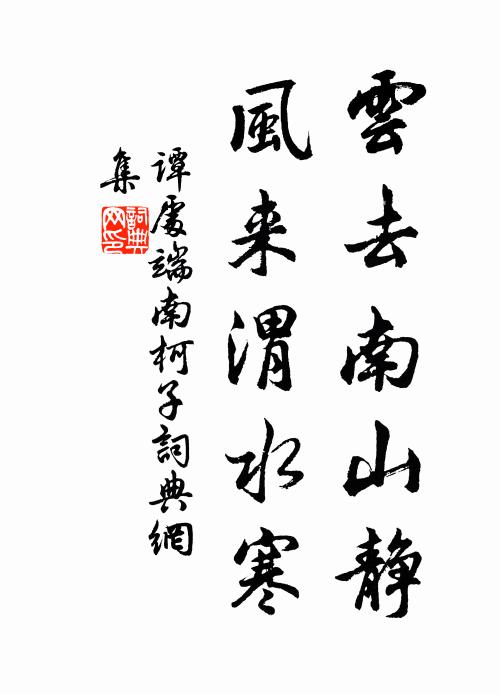 雲去南山静
風来渭水寒
譚處端南柯子詞典網
集
詞典网印